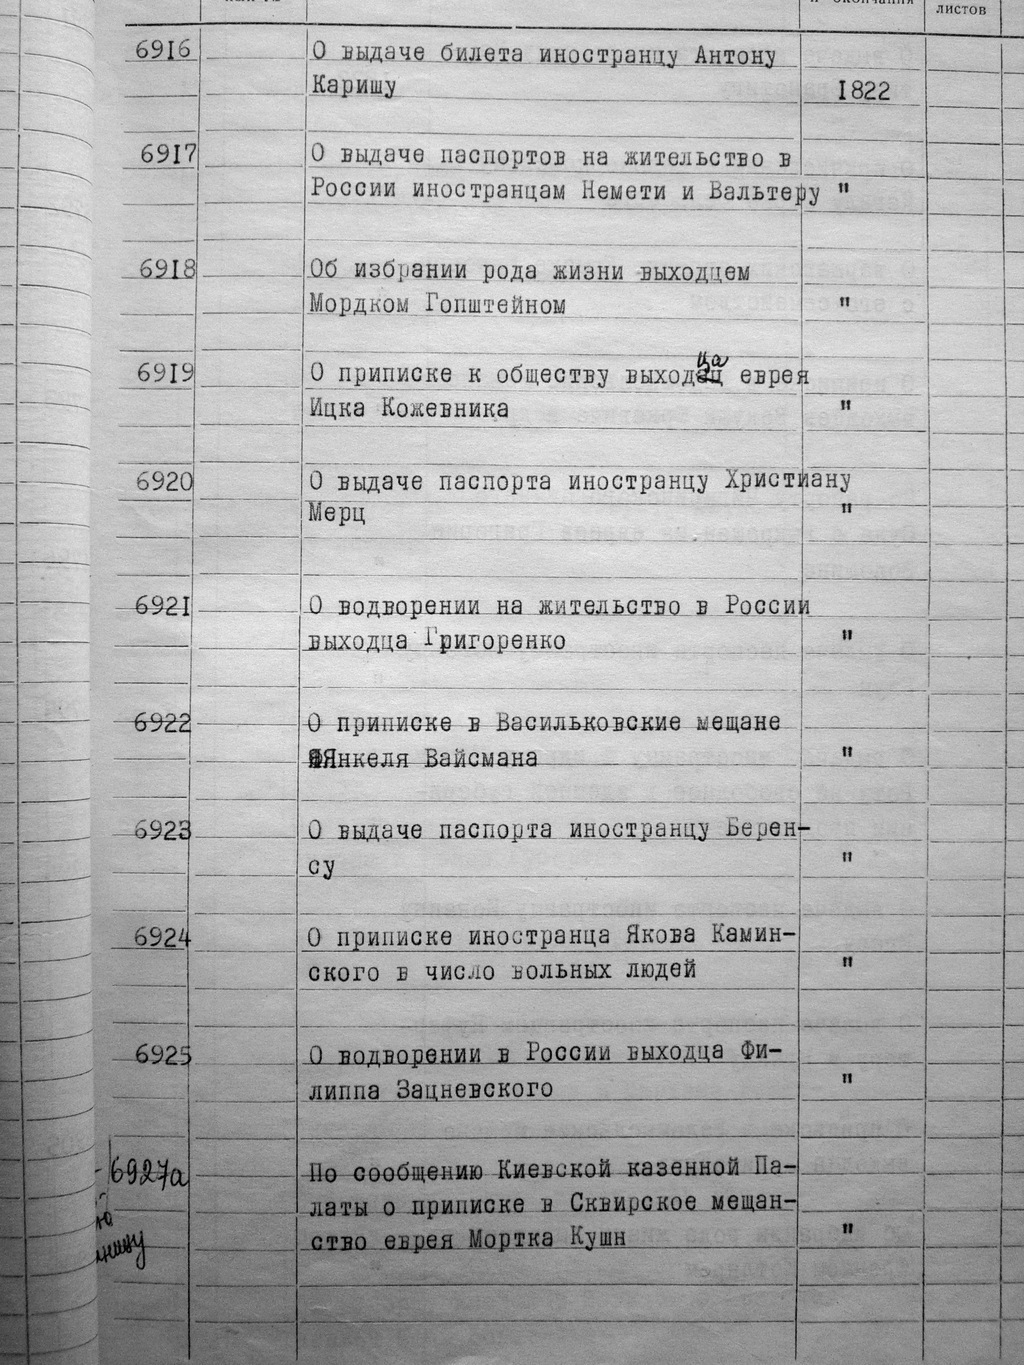 и окончания
листов
6916 О выдаче билета иностранцу Антону
Каришу 1822
6917 О выдаче паспортов на жительство в
России иностранцам Немети и Вальтеру "
6918 Об избрании рода жизни выходцем
Мордком Гопштейном "
6919 О приписке к обществу выходца еврея
Ицка Кожевника "
6920 О выдаче паспорта иностранцу Христиану
Мерц "
6921 О водворении на жительство в России
выходца Григоренко "
6922 О приписке в Васильковские мещане
Янкеля Вайсмана "
6923 О выдаче паспорта иностранцу Берен-
су "
6924 О приписке иностранца Якова Камин-
ского в число вольных людей "
6925 О водворении в России выходца Фи-
липпа Зацневского "
6927а По сообщению Киевской казенной Па-
латы о приписке в Сквирское мещан-
ство еврея Мортка Кушн "